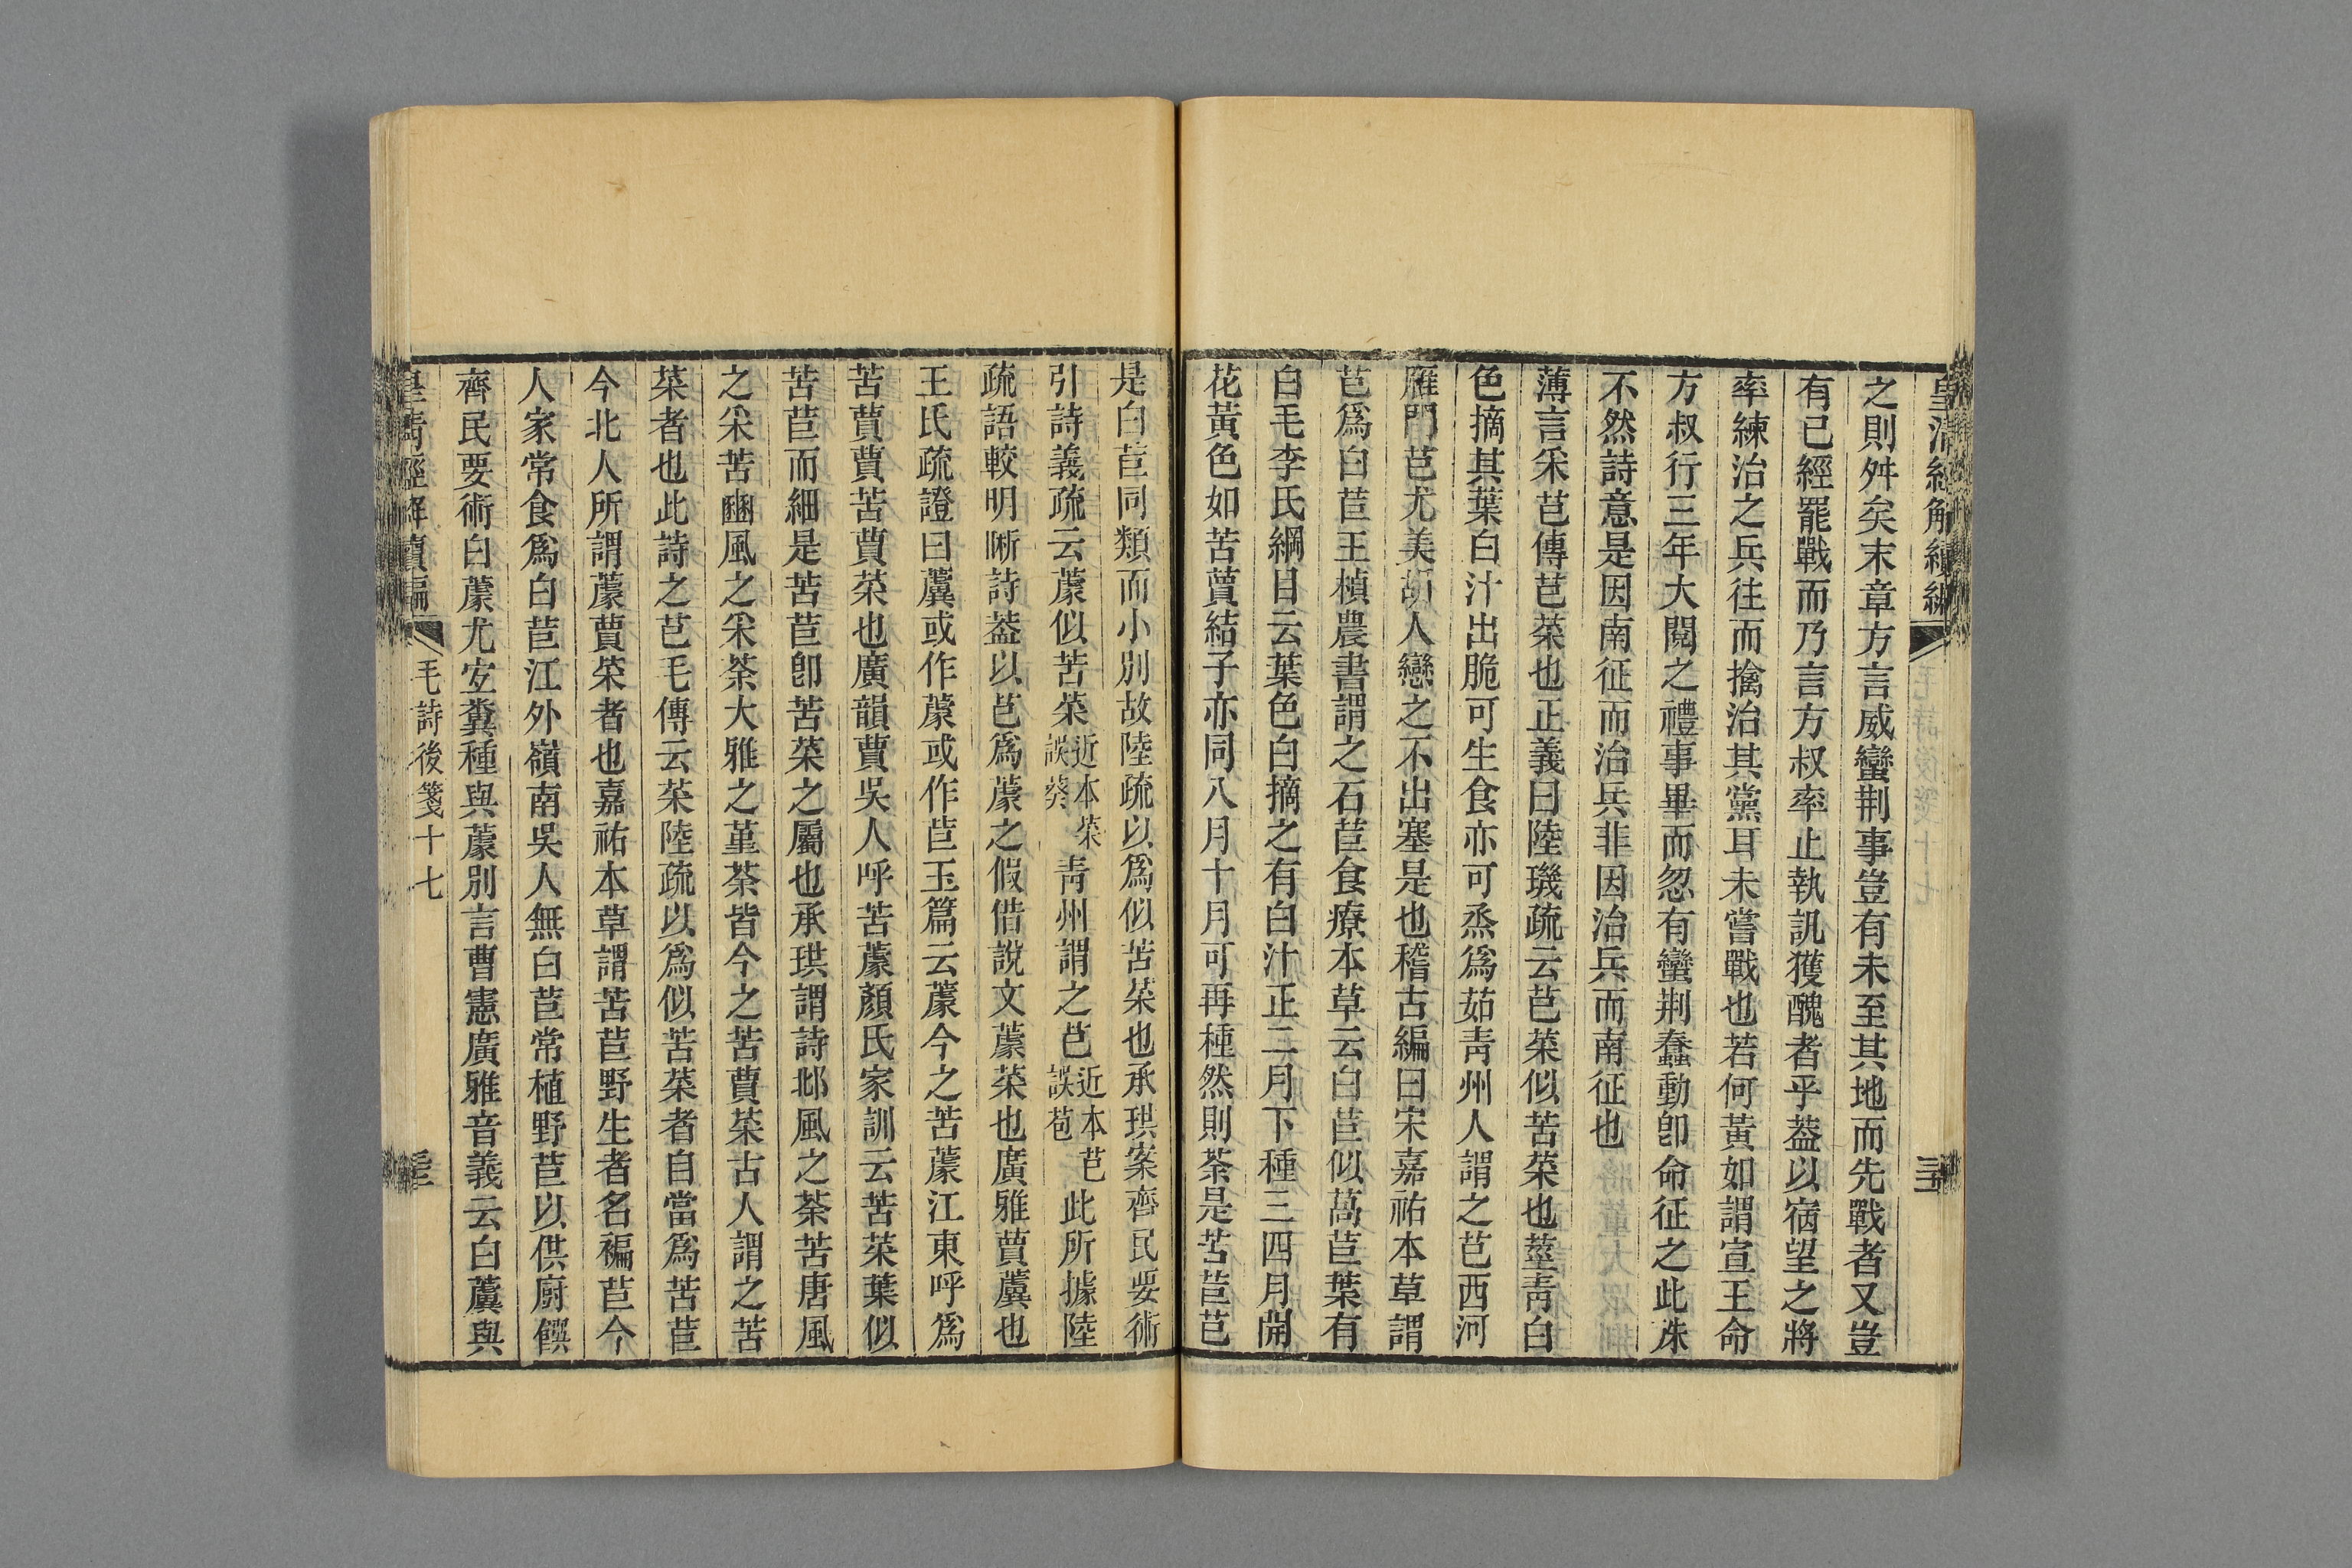 皇清經解續編
之則舛矣末章方言威蠻荆事豈有未至其地而先戰者又豈
有已經罷戰而乃言方叔率止執訊獲醜者乎葢以宿望之將
率練治之兵往而擒治其黨耳未嘗戰也若何黃如謂宣王命
方叔行三年大閱之禮事畢而忽有蠻荆蠢動卽命征之此殊
不然詩意是因南征而治兵非因治兵而南征也
薄言采芑傳芑菜也正義曰陸璣疏云芑菜似苦菜也莖靑白
色摘其葉白汁出脆可生食亦可烝爲茹靑州人謂之芑西河
雁門芑尤美胡人戀之不出塞是也稽古編曰宋嘉祐本草謂
芑爲白苣王楨農書謂之石苣食療本草云白苣似萵苣葉有
白毛李氏綱目云葉色白摘之有白汁正二月下種三四月開
花黃色如苦蕒結子亦同八月十月可再種然則荼是苦苣芑
是白苣同類而小別故陸疏以爲似苦菜也承珙案齊民要術
引詩義疏云蘪似苦菜近本菜誤葵靑州謂之芑近本芑誤苞此所據陸
疏語較明晣詩葢以芑爲蘪之假借說文蘪菜也廣雅蕒蘪也
王氏疏證曰蘪或作蘪或作苣玉篇云蘪今之苦蘪江東呼爲
苦蕒蕒苦蕒菜也廣韻蕒吳人呼苦蘪顏氏家訓云苦菜葉似
苦苣而細是苦苣卽苦菜之屬也承珙謂詩邶風之荼苦唐風
之采苦豳風之采荼大雅之堇荼皆今之苦蕒菜古人謂之苦
菜者也此詩之芑毛傳云菜陸疏以爲似苦菜者自當爲苦苣
今北人所謂蘪蕒菜者也嘉祐本草謂苦苣野生者名褊苣今
人家常食爲白苣江外嶺南吳人無白苣常植野苣以供廚饌
齊民要術白蘪尤宐糞種與蘪別言曹憲廣雅音義云白蘪與
皇淸經解續編
毛詩後箋十七